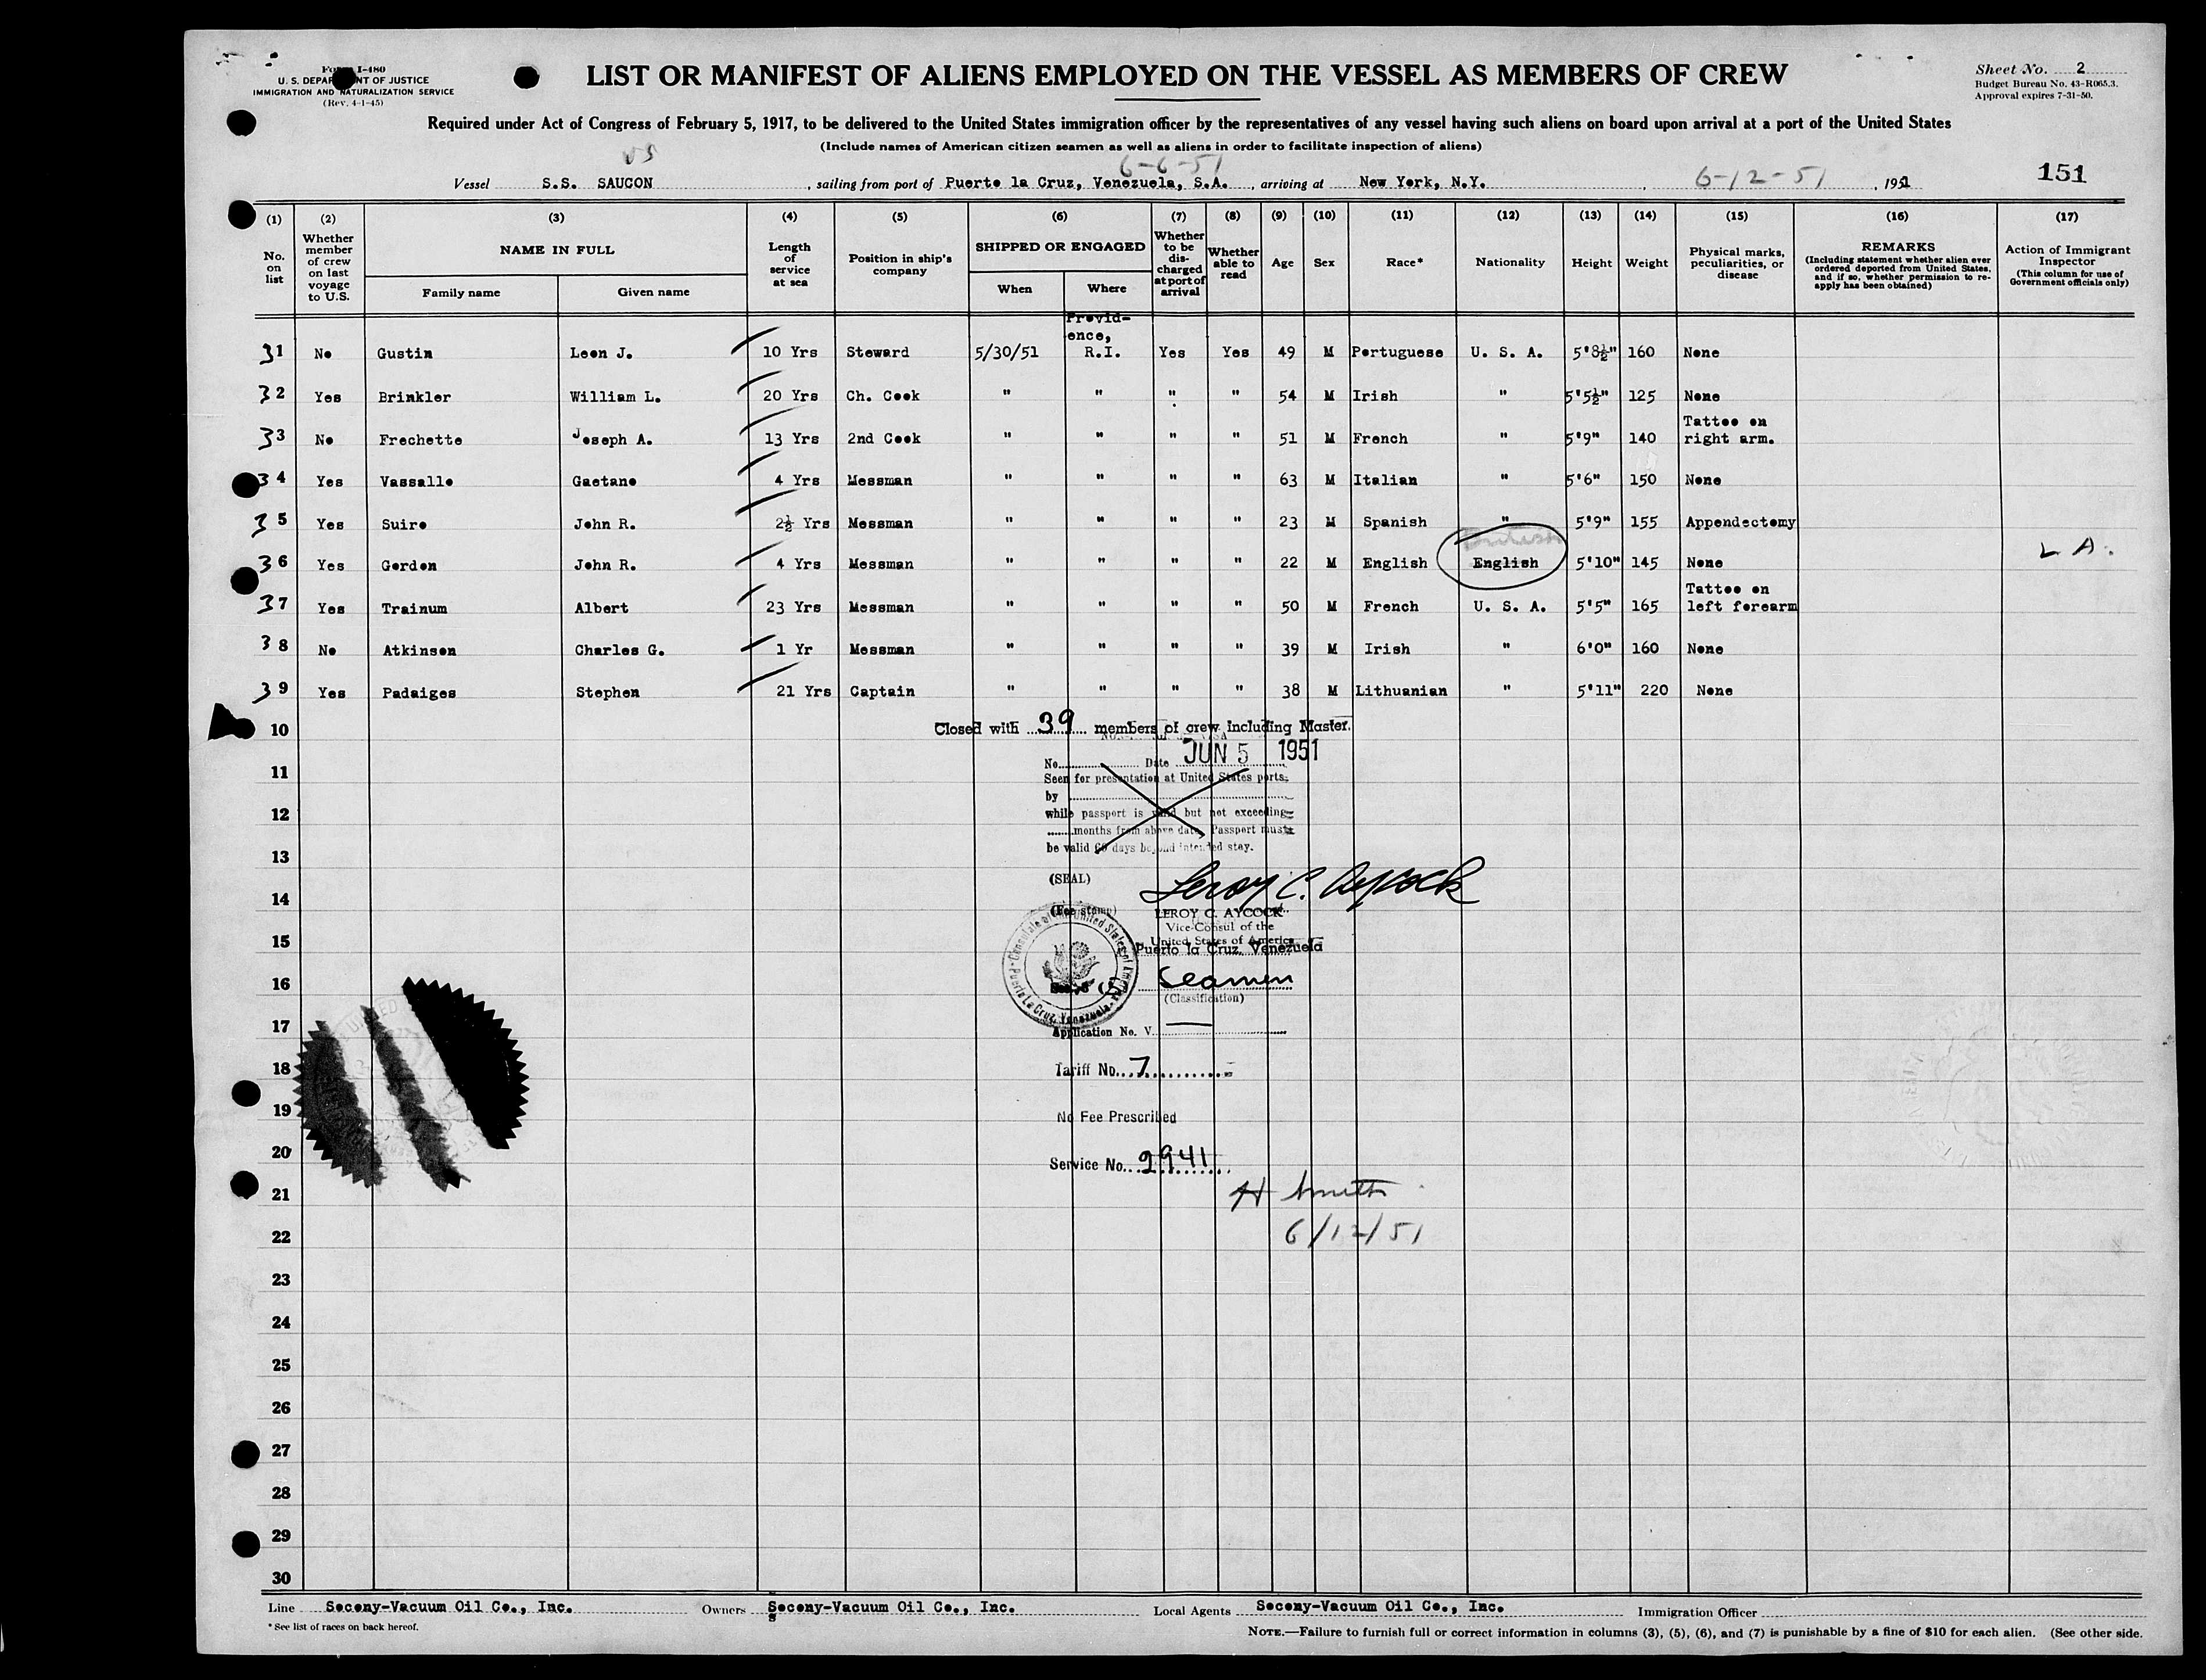 Form I-480
U. S. DEPARTMENT OF JUSTICE
IMMIGRATION AND NATURALIZATION SERVICE
(Rev. 4-1-45)
LIST OR MANIFEST OF ALIENS EMPLOYED ON THE VESSEL AS MEMBERS OF CREW
Sheet No. 2
Budget Bureau No. 43-R065.3.
Approval expires 7-31-50.
Required under Act of Congress of February 5, 1917, to be delivered to the United States immigration officer by the representatives of any vessel having such aliens on board upon arrival at a port of the United States
(Include names of American citizen seamen as well as aliens in order to facilitate inspection of aliens)
US 6-6-51
Vessel S.S. SAUCON, sailing from port of Puerto la Cruz, Venezuela, S.A., arriving at New York, N.Y. 6-12-51, 1951
151
(1) (2) (3) (4) (5) (6) (7) (8) (9) (10) (11) (12) (13) (14) (15) (16) (17)
No. on list
Whether member of crew on last voyage to U.S.
NAME IN FULL
Family name Given name
Length of service at sea
Position in ship's company
SHIPPED OR ENGAGED
When Where
Whether to be discharged at port of arrival
Whether able to read
Age
Sex
Race*
Nationality
Height
Weight
Physical marks, peculiarities, or disease
REMARKS
(Including statement whether alien ever ordered deported from United States, and if so, whether permission to reapply has been obtained)
Action of Immigrant Inspector
(This column for use of Government officials only)
31 No Gustin Leon J. 10 Yrs Steward 5/30/51 Providence, R.I. Yes Yes 49 M Portuguese U. S. A. 5'8½" 160 None
32 Yes Brinkler William L. 20 Yrs Ch. Cook " " " " 54 M Irish " 5'5½" 125 None
33 No Frechette Joseph A. 13 Yrs 2nd Cook " " " " 51 M French " 5'9" 140 Tattoo on right arm.
34 Yes Vassallo Gaetano 4 Yrs Messman " " " " 63 M Italian " 5'6" 150 None
35 Yes Suiro John R. 2½ Yrs Messman " " " " 23 M Spanish " 5'9" 155 Appendectomy
36 Yes Gordon John R. 4 Yrs Messman " " " " 22 M English British English 5'10" 145 None L A.
37 Yes Trainum Albert 23 Yrs Messman " " " " 50 M French U. S. A. 5'5" 165 Tattoo on left forearm
38 No Atkinson Charles G. 1 Yr Messman " " " " 39 M Irish " 6'0" 160 None
39 Yes Padaiges Stephen 21 Yrs Captain " " " " 38 M Lithuanian " 5'11" 220 None
10
Closed with 39 members of crew including Master.
No. Date JUN 5 1951
11
Seen for presentation at United States ports
by
12
while passport is valid but not exceeding
months from above date. Passport must
13
be valid 60 days beyond intended stay.
(SEAL)
14
Leroy C. Aycock
(Fee stamp)
LEROY C. AYCOCK
Vice-Consul of the
United States of America
15
Puerto la Cruz, Venezuela
Consulate of the United States of America
Puerto La Cruz, Venezuela
16
Seamen
(Classification)
17
Application No. V
18
Tariff No. 7
19
No Fee Prescribed
20
Service No. 2941
21
H Smith
22
6/12/51
23
24
25
26
27
28
29
30
Line Socony-Vacuum Oil Co., Inc. Owners Socony-Vacuum Oil Co., Inc. Local Agents Socony-Vacuum Oil Co., Inc. Immigration Officer
* See list of races on back hereof.
NOTE.—Failure to furnish full or correct information in columns (3), (5), (6), and (7) is punishable by a fine of $10 for each alien. (See other side.